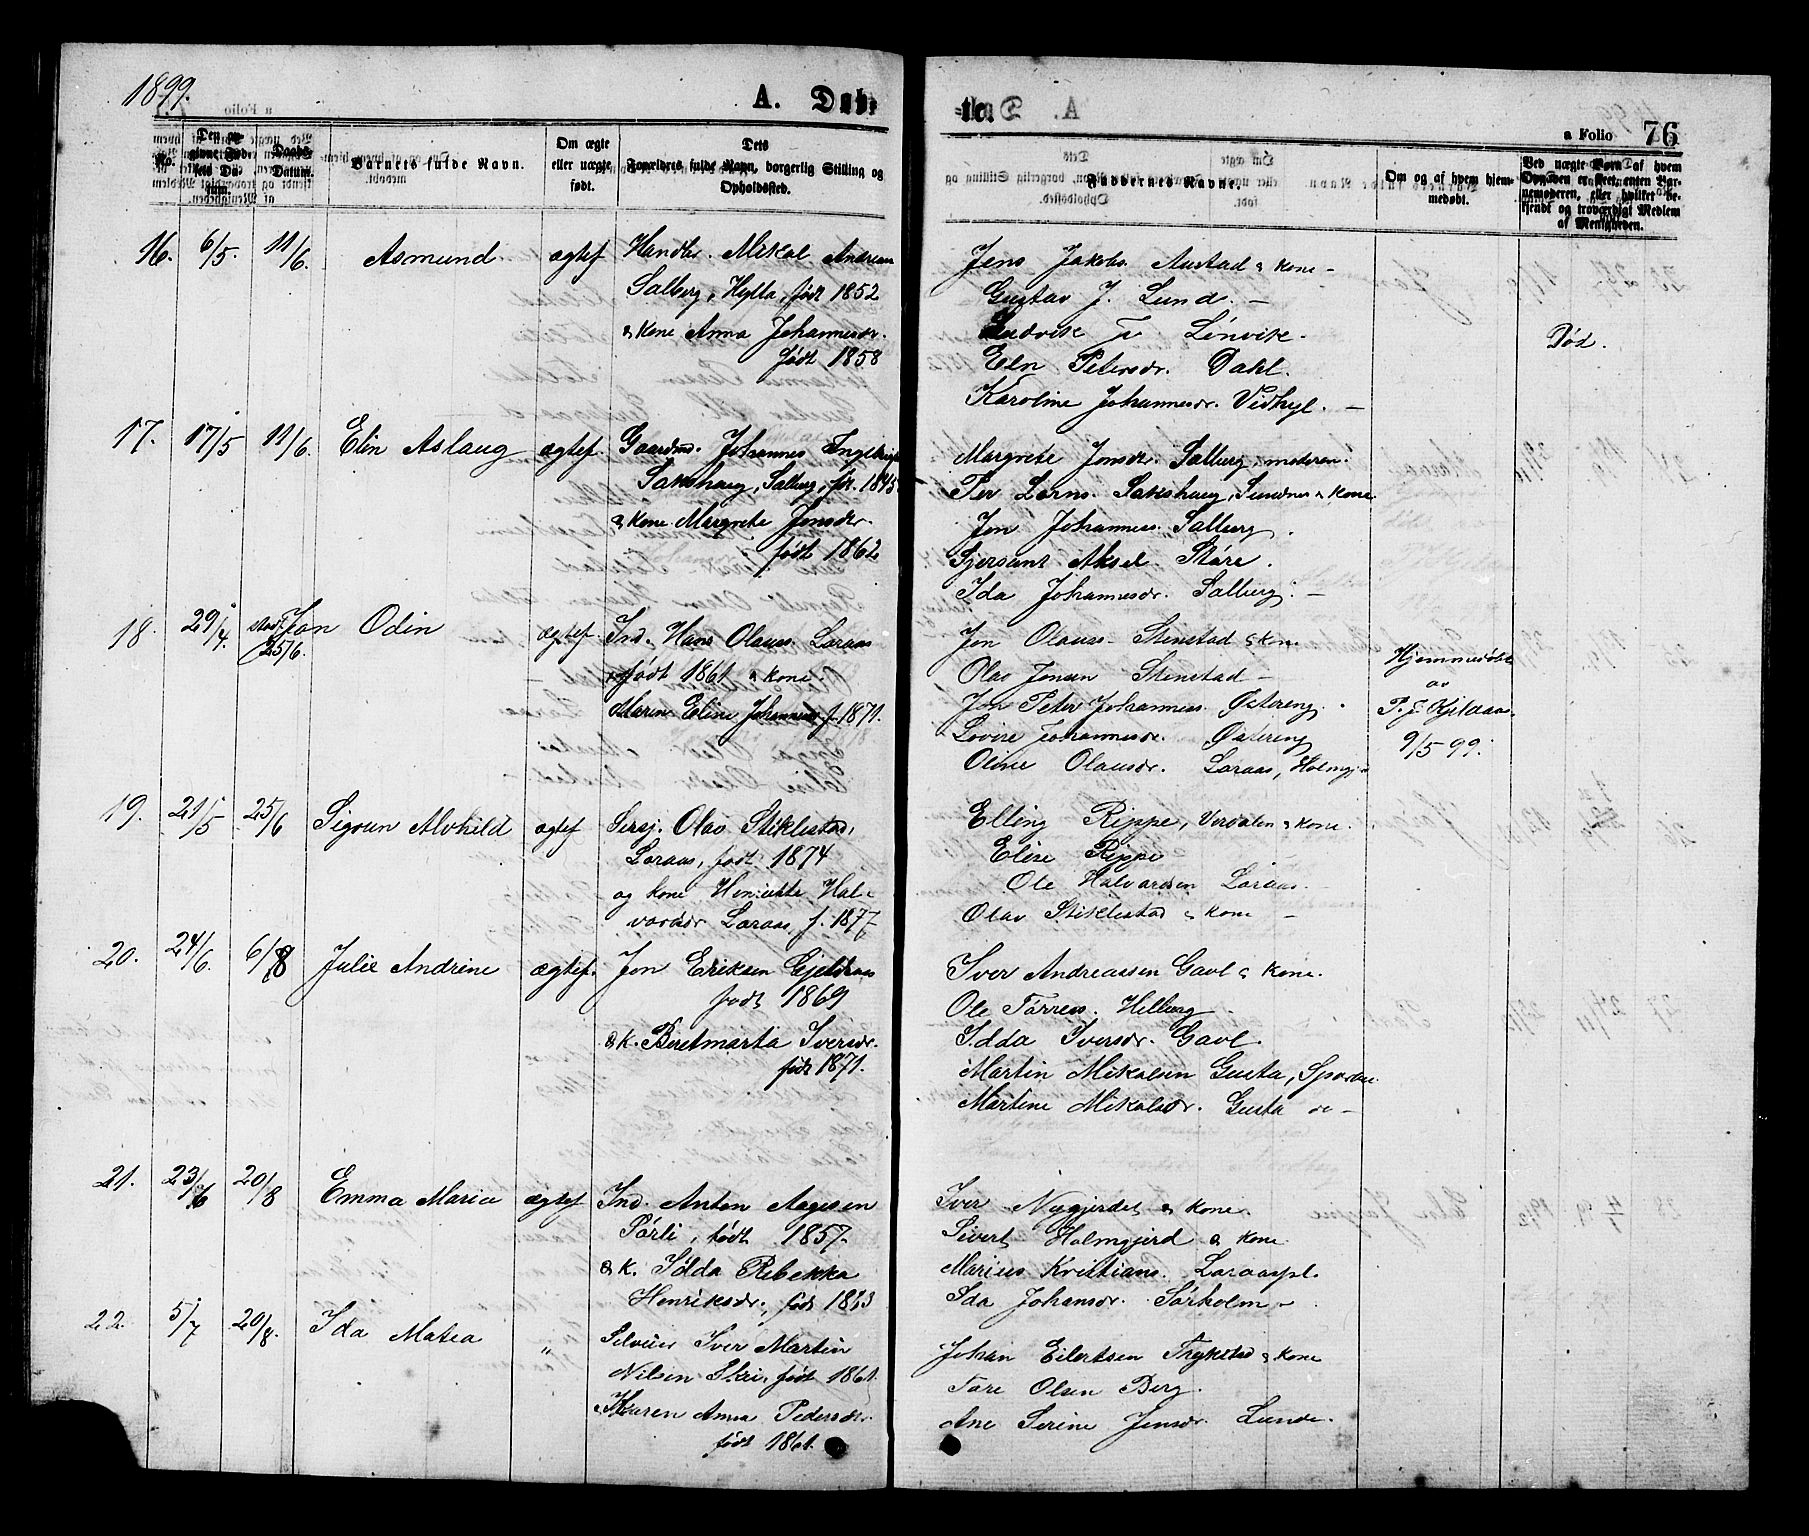 1899.
A. Dab.
No.
Barnets fulde Navn.
Om ægte
eller uægte
født.
Dets
Forældres fulde Navn, borgerlig Stilling og
Opholdssted.
16. 6/5. 11/6. Asmund ægtef Handls. Mikal Andreas
Salberg, Hylla, født 1852
& kone Anna Johannesdr.
født 1858
17. 17/5 11/6. Elin Aslaug ægtef. Gaardmd. Johannes
Sakshaug, Salberg, føt. 1845
& kone Margrete Jonsdr.
født 1862
18. 29/4. 25/6. Jon Odin ægtef. Ind. Hans Olauss. Laraas
født 1861 & kone
Maren Eline Johannesdr f. 1871.
19. 21/5 25/6 Sigrun Alvhild ægtef Sersj. Olav Stiklestad,
Laraas, født 1874
og kone Henriette Hal-
vorsdr Laraas, f. 1877
20. 24/6. 6/8 Julie Andrine ægtef. Jon Eriksen
født 1869
& k. Beretmarta Iversdr.
født 1871.
21. 23/6 20/8 Emma Maria ægtef Ind. Anton Aagesen
Pørli, født 1857.
& k. Idda Rebekka
Henriksdr., født
22. 5/7 20/8. Ida Matea " Selveier Iver Martin
Nilsen Skei, født 1861
& Karen Anna Pedersdr.
født 1861.
a Folio 76
Faddernes Navne.
Om og af hvem hjem-
medøbt.
Ved uægte Børn af hvem
Opgaven er skeet, enten Bar-
nemoderen, eller hvilket be-
kjendt og troværdigt Medlem
af Menigheden.
Jens Jakobs. Austad & kone -
Gustav J. Lund. -
Ludvik J. Lønvik.
Eln Petersdr. Dahl.
Karoline Johannesdr. Vidhyl. -
Død.
Margrete Jonsdr. Salberg, moderen.
Per Larns. Sakshaug, Sundnes & kone
Jon Johanness. Salberg.
Sjersant Aksel Støre.
Ida Johannesdr. Salberg. -
Jon Olauss. Stenstad & kone.
Olav Jonsen Stenstad -
Jon Peter Johanness. Østereng.
Lovise Johannesdr. Østereng
Oline Olausdr. Laraas, Holmgj.
Hjemmedøbt
av
P. J. Kjelaas.
9/5-99.
Elling Rippe, Verdalen & kone.
Elise Rippe
Ole Halvardsen Laraas.
Olav Stiklestad & kone -
Iver Andreassen Gavl & kone.
Ole Tørress. Helberg
Idda Iversdr. Gavl.
Martin Mikalsen Gusta, Sparbu.
Martine Mikalsdr. Gusta do -
Iver Nygjerdet & kone.
Sivert Holmgjerd & kone.
Marius Kristians. Laraaspl.
Ida Johansdr. Sørholm -
Johan Eilertsen Trykstad & kone
Tore Olsen Berg.
Ane Serine Jensdr. Lunde.